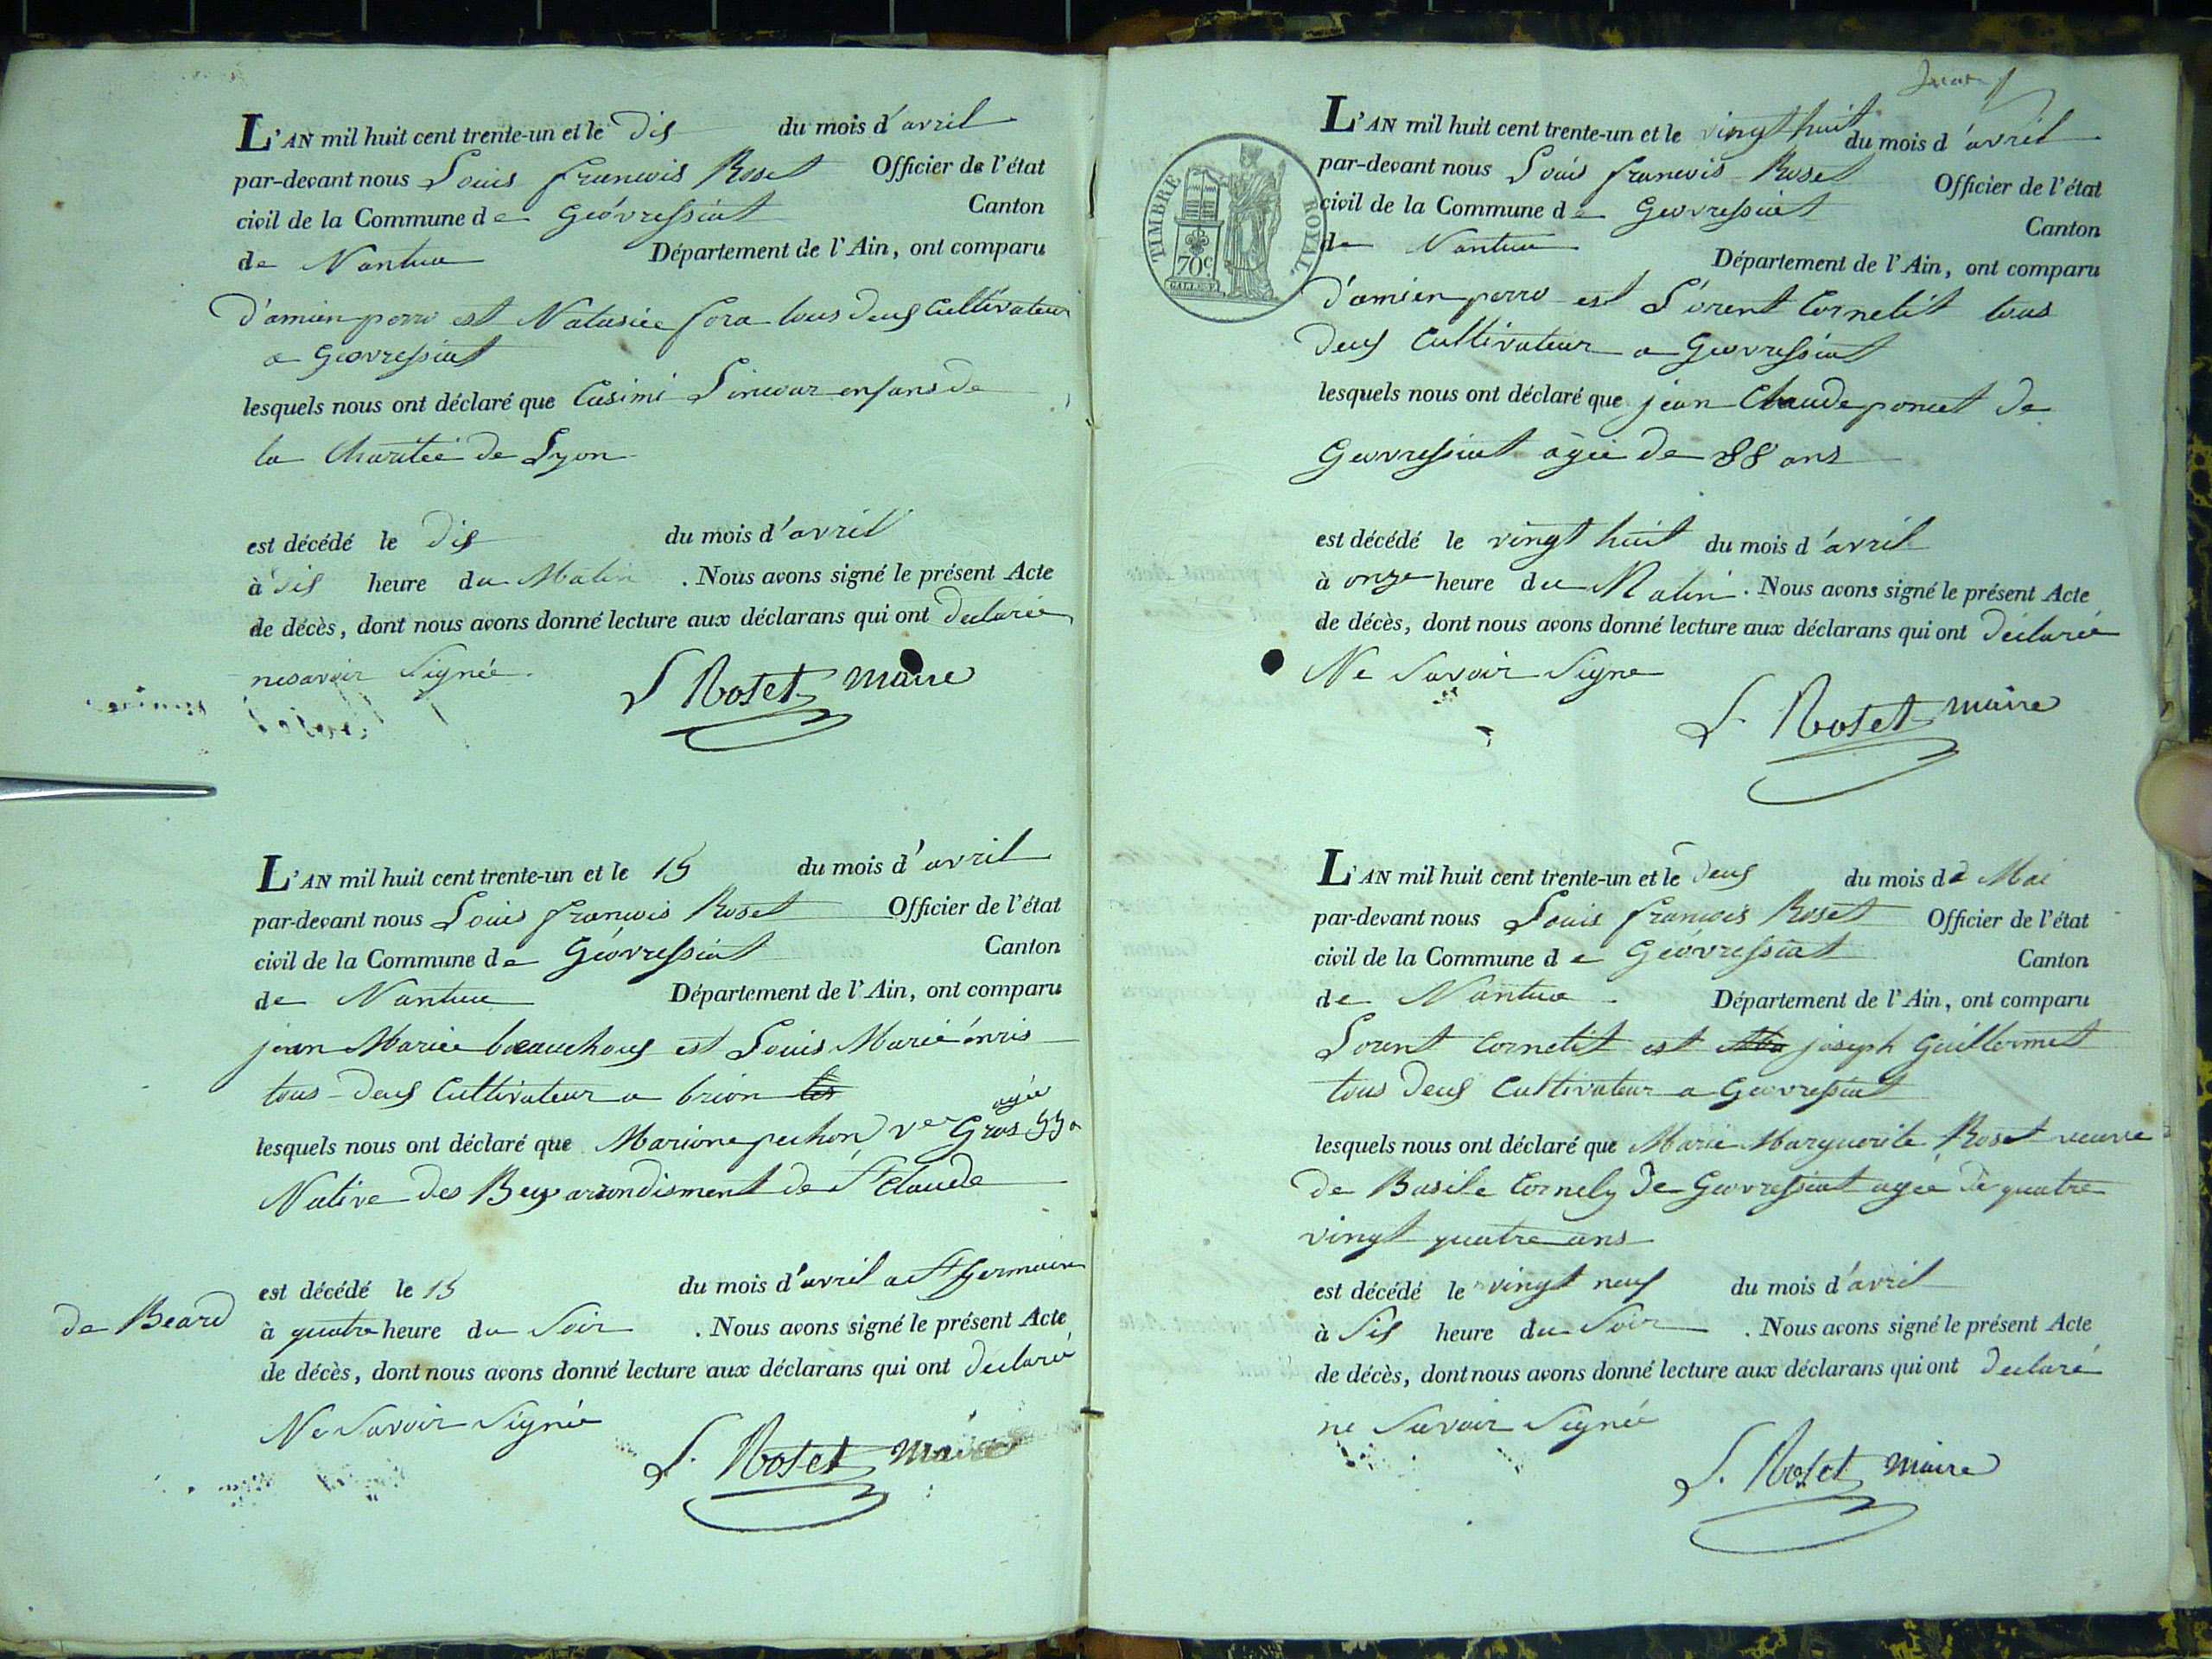 L'AN mil huit cent trente-un et le dis du mois d'avril
par-devant nous Louis francois Roset Officier de l'état
civil de la Commune de Géovressiat Canton
de Nantua Département de l'Ain, ont comparu
d'amien perro est fora tous deus Cultivateur
a Géovressiat
lesquels nous ont déclaré que Casimi enfans de
la Charitée de Lyon
est décédé le dis du mois d'avril
à sis heure du Matin. Nous avons signé le présent Acte
de décès, dont nous avons donné lecture aux déclarans qui ont declarée
nesavoir Signée.
L Roset maire
L'AN mil huit cent trente-un et le 15 du mois d'avril
par-devant nous Louis francois Roset Officier de l'état
civil de la Commune de Géovressiat Canton
de Nantua Département de l'Ain, ont comparu
jean Mariee beauchous est Louis Marié
tous deus Cultivateur a brion
agée
lesquels nous ont déclaré que Marione pechon Ve Gros 55 a
Native des Bous arondisment de St Claude
est décédé le 15 du mois d'avril a St germain
de Beard à quatre heure du Soir. Nous avons signé le présent Acte
de décès, dont nous avons donné lecture aux déclarans qui ont declaré
Ne Savoir Signée
L. Roset maire
TIMBRE ROYAL.
70c
L'AN mil huit cent trente-un et le vingt huit du mois d'avril
par-devant nous Louis francois Roset Officier de l'état
civil de la Commune de Geovressiat Canton
de Nantua Département de l'Ain, ont comparu
d'amien perro est L'orent Cornelit tous
deus Cultivateur a Geovressiat
lesquels nous ont déclaré que jean Claude poncet de
Geovressiat agée de 88 ans
est décédé le vingt huit du mois d'avril
à onze heure du Matin. Nous avons signé le présent Acte
de décès, dont nous avons donné lecture aux déclarans qui ont déclarée
Ne Savoir Signe
L. Roset maire
L'AN mil huit cent trente-un et le deus du mois de Mai
par-devant nous Louis francois Roset Officier de l'état
civil de la Commune de Géovressiat Canton
de Nantua Département de l'Ain, ont comparu
Lorent Cornelit est joseph Guillermet
tous deus Cultivateur a Geovressiat
lesquels nous ont déclaré que Marie Marguerite Roset veuve
de Basile Cornely de Geovressiat agée de quatre
vingt quatre ans
est décédé le vingt neuf du mois d'avril
à Sis heure du Soir. Nous avons signé le présent Acte
de décès, dont nous avons donné lecture aux déclarans qui ont declaré
ne Savoir Signée
L. Roset maire